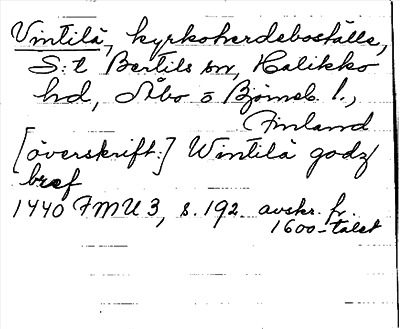 Vintilä, kyrkoherdeboställe,
S:t Bertils sn, Halikko
hd, Åbo o Björneb. l.,
Finland
[överskrift:] Wintilä godz
bref
1440 FMU 3, s. 192. avskr. fr.
1600-talet